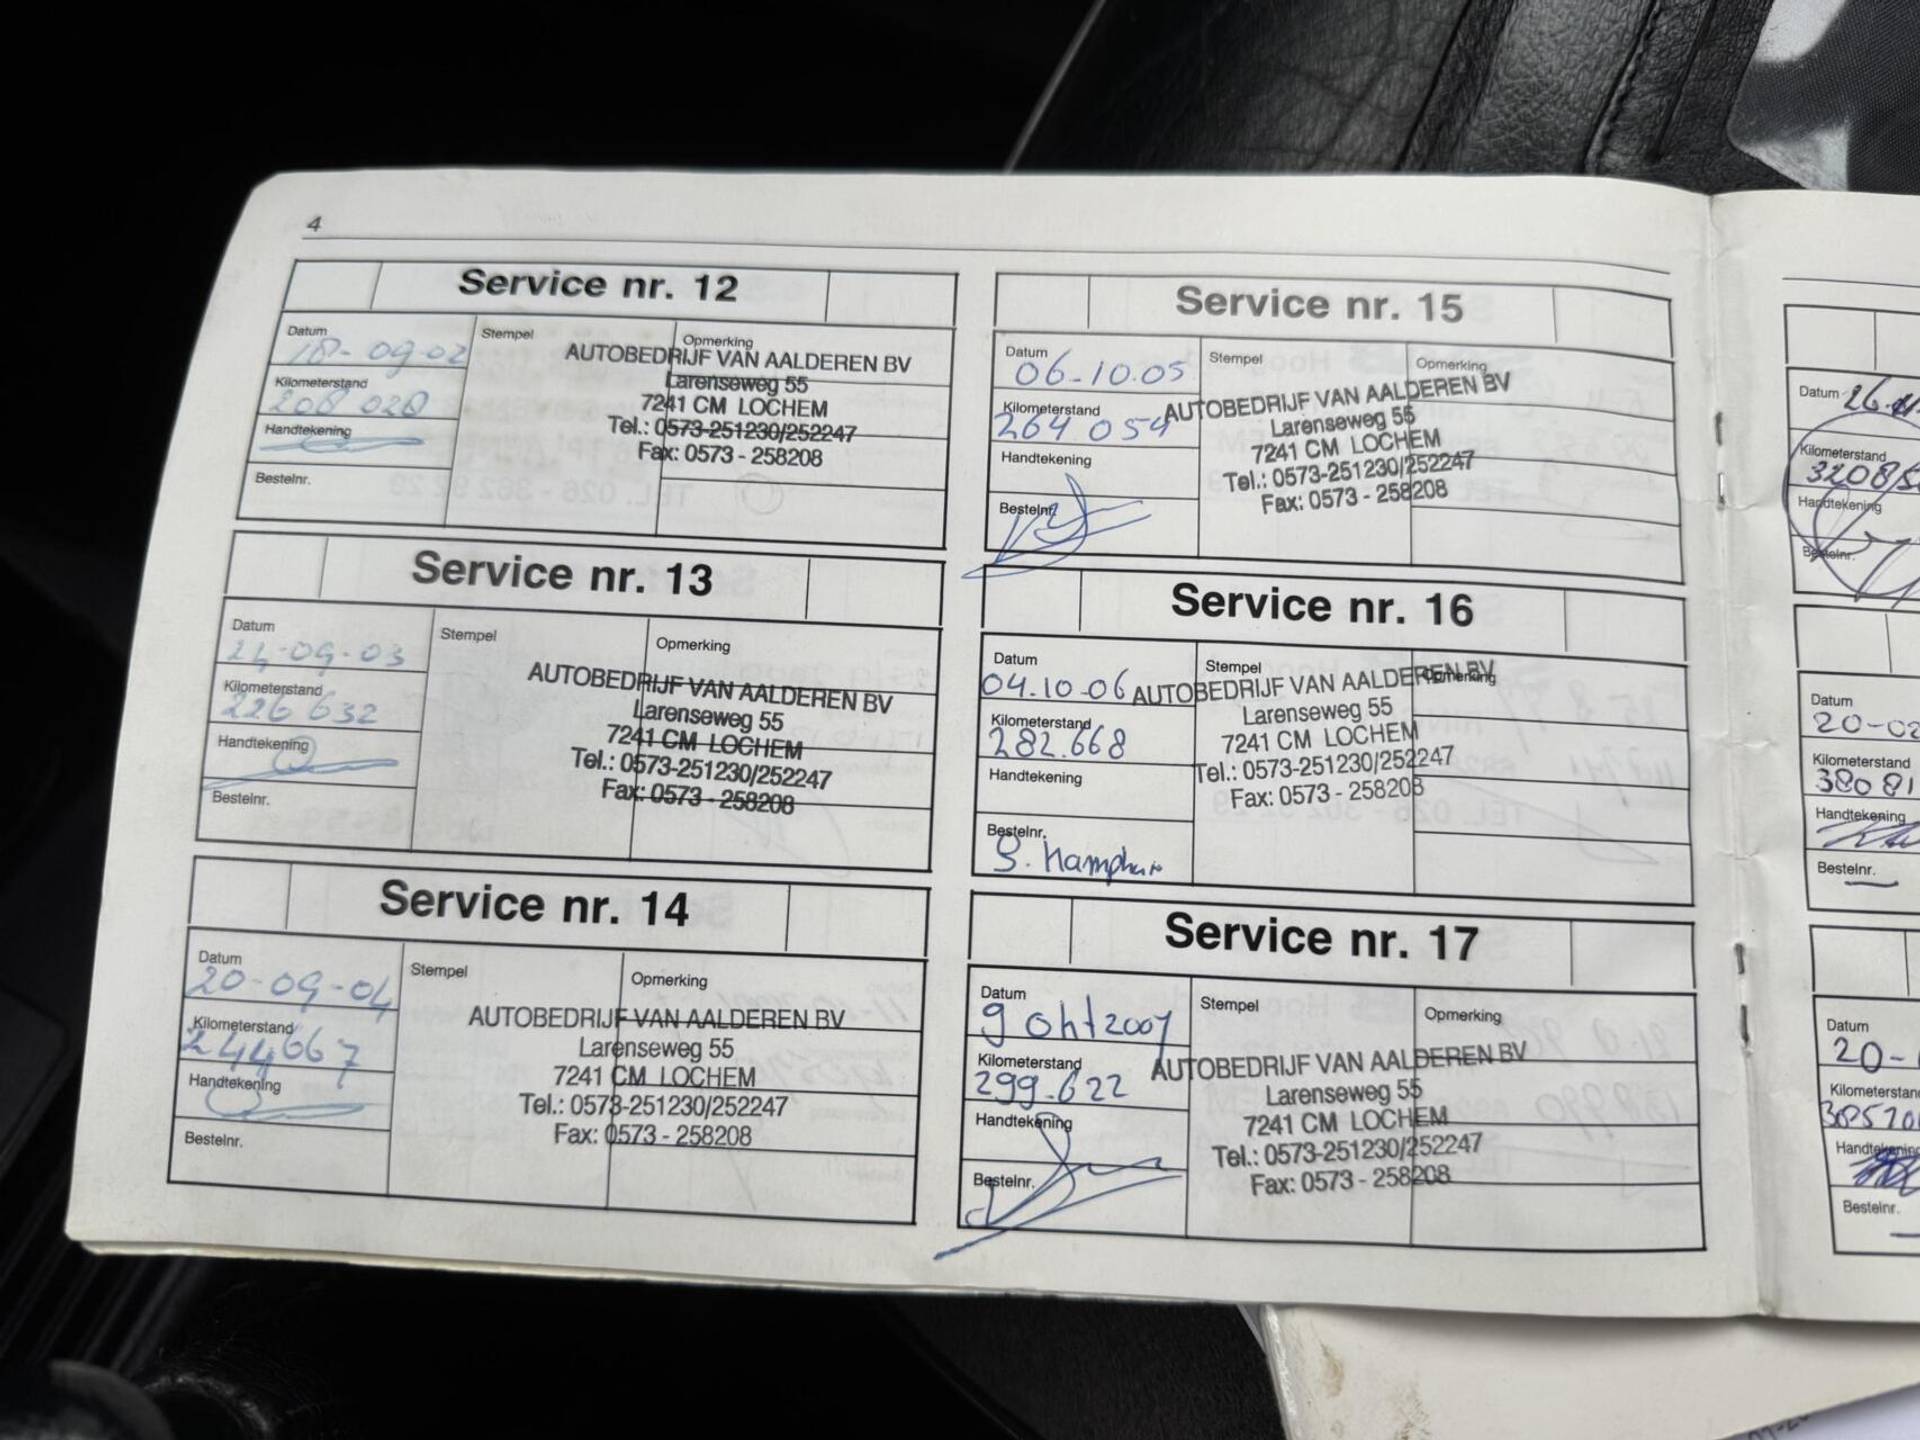 4
Service nr. 12
Datum
18-09-02
Kilometerstand
208 028
Handtekening
Bestelnr.
Stempel
Opmerking
AUTOBEDRIJF VAN AALDEREN BV
Larenseweg 55
7241 CM LOCHEM
Tel.: 0573-251230/252247
Fax: 0573 - 258208
Service nr. 13
Datum
24-09-03
Kilometerstand
226 632
Handtekening
Bestelnr.
Stempel
Opmerking
AUTOBEDRIJF VAN AALDEREN BV
Larenseweg 55
7241 CM LOCHEM
Tel.: 0573-251230/252247
Fax: 0573 - 258208
Service nr. 14
Datum
20-09-04
Kilometerstand
244667
Handtekening
Bestelnr.
Stempel
Opmerking
AUTOBEDRIJF VAN AALDEREN BV
Larenseweg 55
7241 CM LOCHEM
Tel.: 0573-251230/252247
Fax: 0573 - 258208
Service nr. 15
Datum
06-10.05
Kilometerstand
264 054
Handtekening
Bestelnr.
Stempel
Opmerking
AUTOBEDRIJF VAN AALDEREN BV
Larenseweg 55
7241 CM LOCHEM
Tel.: 0573-251230/252247
Fax: 0573 - 258208
Service nr. 16
Datum
04.10.06
Kilometerstand
282.668
Handtekening
Bestelnr.
Stempel
Opmerking
AUTOBEDRIJF VAN AALDEREN BV
Larenseweg 55
7241 CM LOCHEM
Tel.: 0573-251230/252247
Fax: 0573 - 258208
Service nr. 17
Datum
9 okt 2007
Kilometerstand
299.622
Handtekening
Bestelnr.
Stempel
Opmerking
AUTOBEDRIJF VAN AALDEREN BV
Larenseweg 55
7241 CM LOCHEM
Tel.: 0573-251230/252247
Fax: 0573 - 258208
Datum
Kilometerstand
Handtekening
Bestelnr.
Datum
20-02
Kilometerstand
38081
Handtekening
Bestelnr.
Datum
20-
Kilometerstand
Handtekening
Bestelnr.